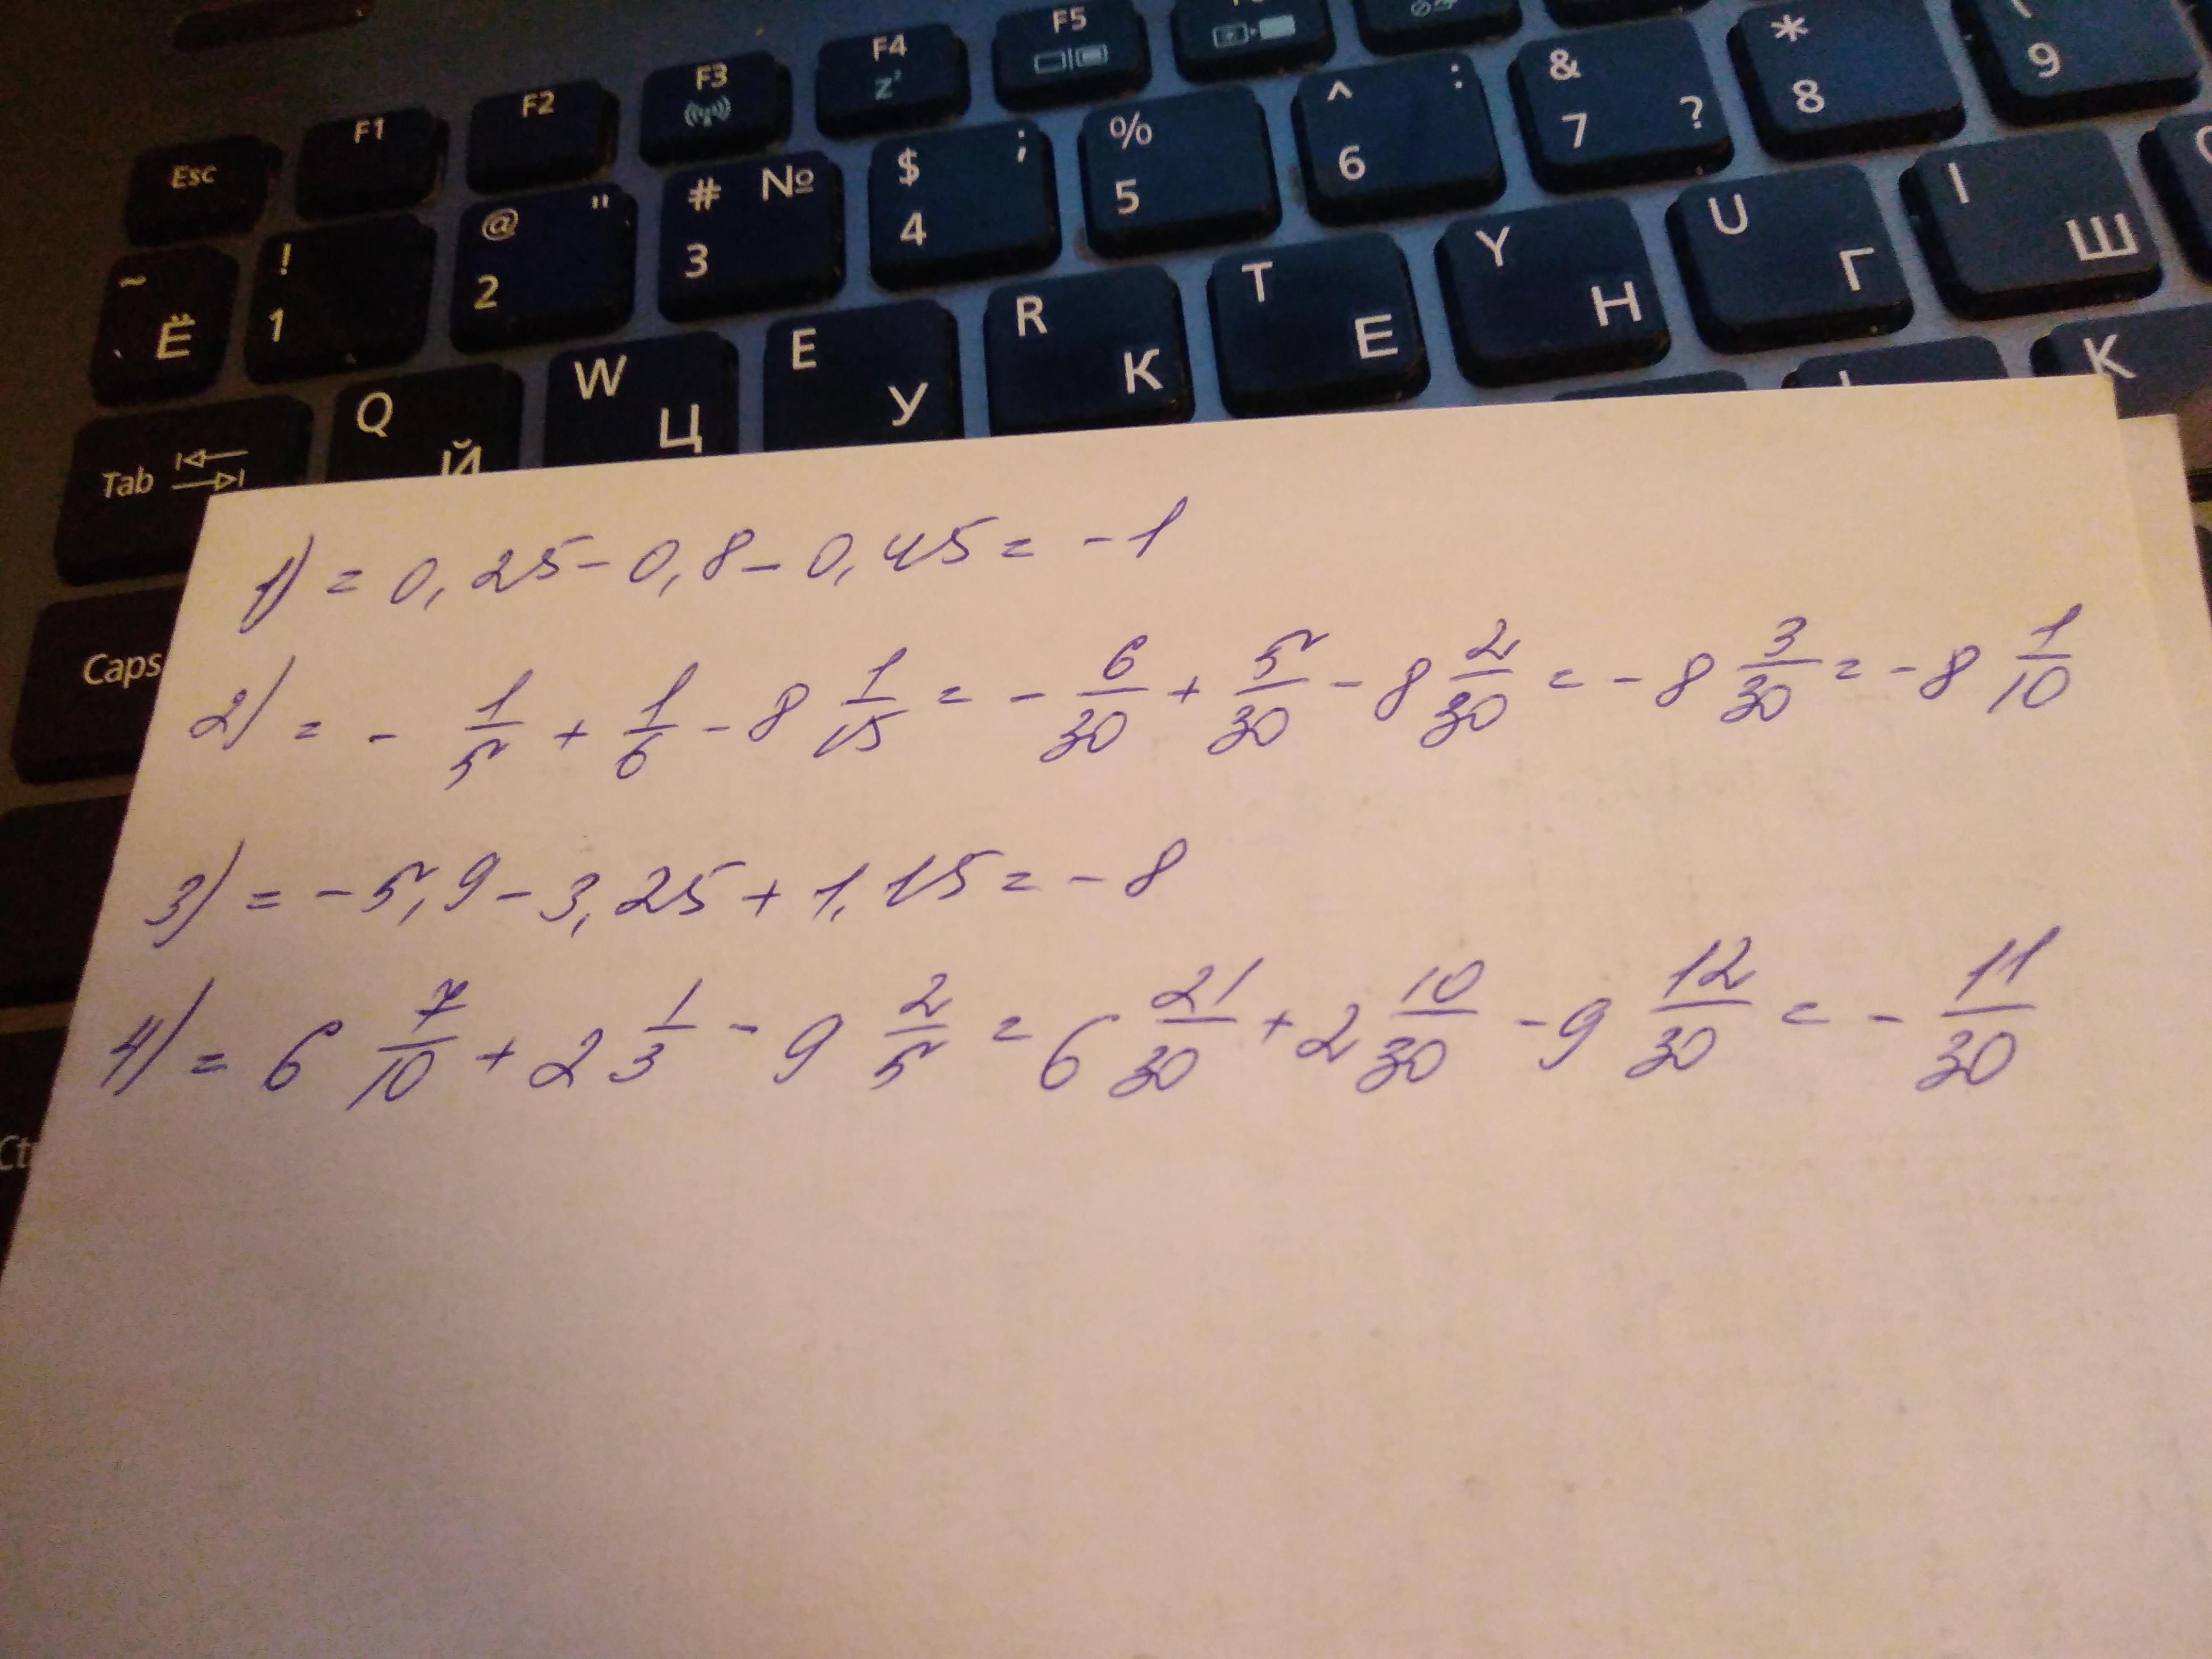 F5
F4 z
F3
F2
F1
Esc
* 8
9
& 7 ?
^ : 6
% 5
$ ; 4
# № 3
@ " 2
! 1
~ Ё
I Ш
U Г
Y Н
T Е
R К
E У
W Ц
Q Й
Tab
K
Caps
1) = 0,25 - 0,8 - 0,45 = -1
2) = - 1/5 + 1/6 - 8 1/15 = - 6/30 + 5/30 - 8 2/30 = - 8 3/30 = - 8 1/10
3) = -5,9 - 3,25 + 1,15 = -8
4) = 6 7/10 + 2 1/3 - 9 2/5 = 6 21/30 + 2 10/30 - 9 12/30 = - 11/30